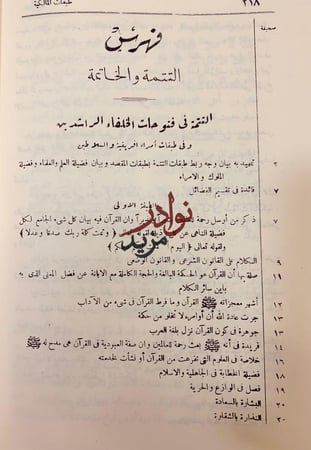 ٣١٨
طبقات المالكية
صحيفة
فهرس
التتمة والخاتمة
التتمة فى فتوحات الخلفاء الراشدين
وفى طبقات أمراء افريقية والسلاطين
٢ تمهيد به بيان وجه ربط طبقات التتمة بطبقات المقصد وبيان فضيلة العلم والعلماء وفضيلة
الملوك والامراء
٧ فائدة فى تقسيم الفضائل
الاولى
٧ ذكر من أرسل رحمة وأن القرآن فيه بيان كل شىء الجامع لكل
فضيلة الناهى عن قوله تعالى ( وتمت كلمة ربك صدقا وعدلا )
ولقوله تعالى ( اليوم
الكلام على القانون الشرعى والقانون الوضعى
١١ صلة بها أن القرآن هو الحكمة البالغة والحجة الكاملة مع الابانة عن فضل المدلى الذى به
باين سائر الكلام
١٢ أشهر معجزاته ﷺ القرآن وما فرط القرآن فى شىء من الآداب
١٣ جرت عادة الله أن أوامره لا تخلو من حكمة
١٣ جوهرة فى كون القرآن نزل بلغة العرب
١٤ فريدة فى أنه ﷺ بعث رحمة للعالمين وان صفة العبودية فى القرآن هى مدح له ﷺ
١٦ خلاصة فى العلوم التى تفرعت من القرآن أو نشأت لخدمته
١٨ فضيلة الخطابة فى الجاهلية والاسلام
١٩ فصل فى الوازع والحرية
٢٠ البشارة بالسعادة
٢٠ النذارة بالشقاوة
نوادر
مريد